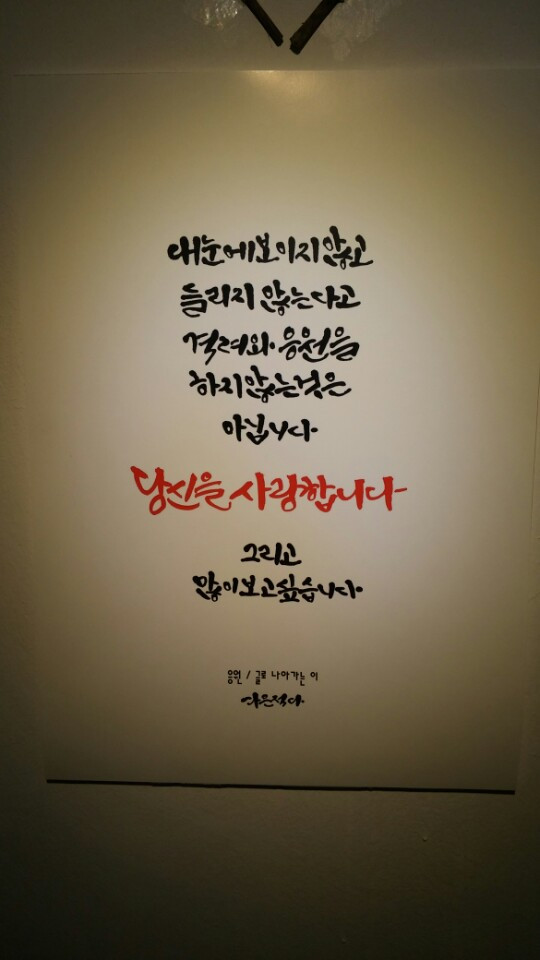 내눈에보이지않고
들리지 않는다고
격려와 응원을
하지않는것은
아닙니다
당신을 사랑합니다
그리고
많이보고싶습니다
응원 / 글로 나아가는 이